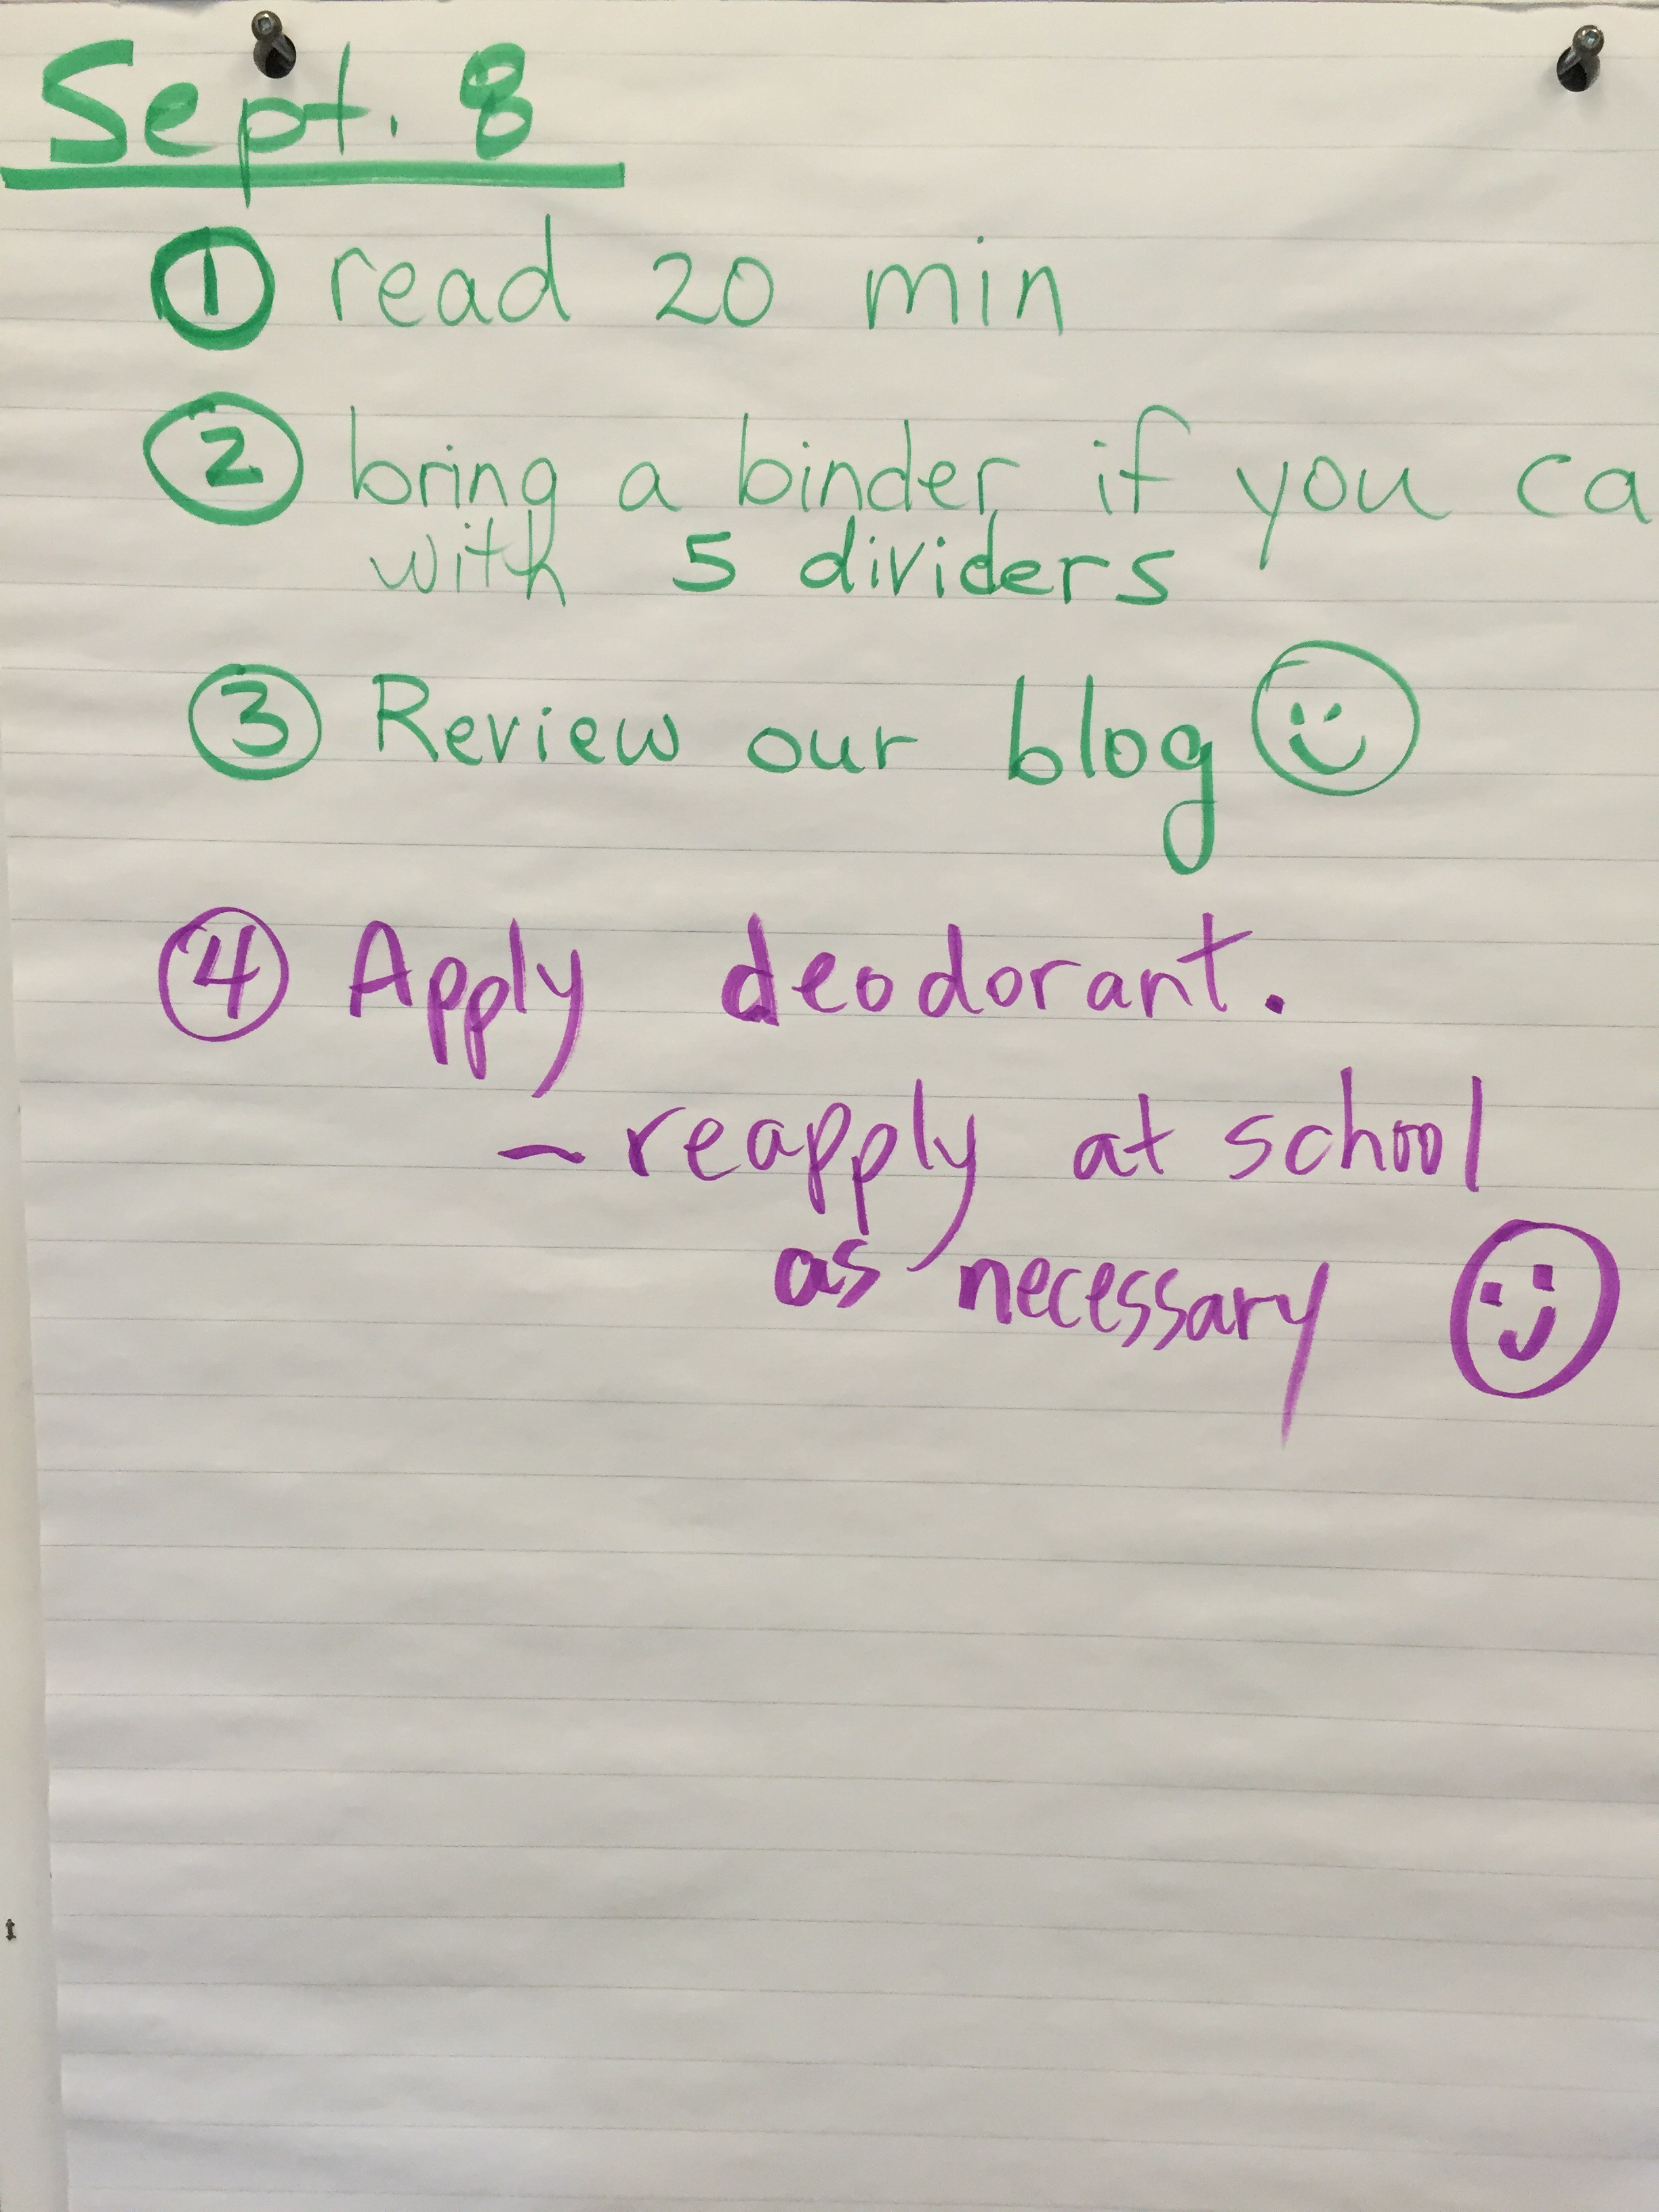 Sept. 8
① read 20 min
② bring a binder if you ca
with 5 dividers
③ Review our blog
④ Apply deodorant.
- reapply at school
as necessary